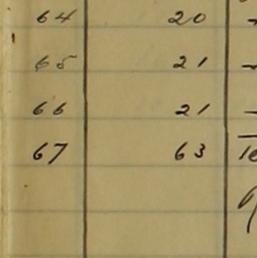 64 20
65 21
66 21
67 63